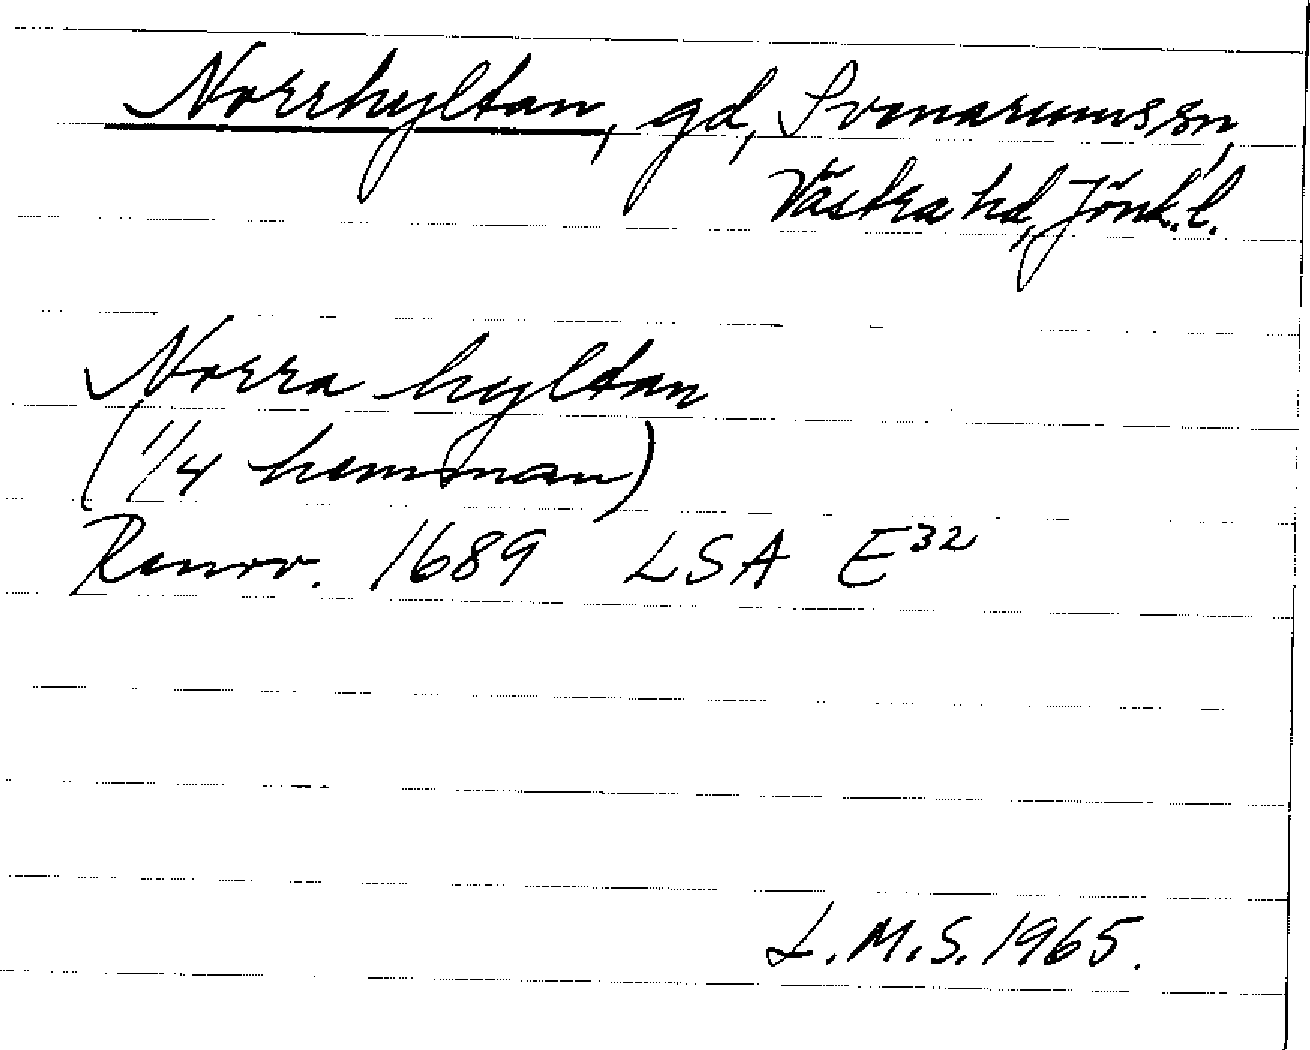 Norrhyltan, gd, Svenarums sn,
Västra hd, Jönk.l.
Norra hyltan
(1/4 hemman)
Renov. 1689 LSA E32
L.M.S. 1965.